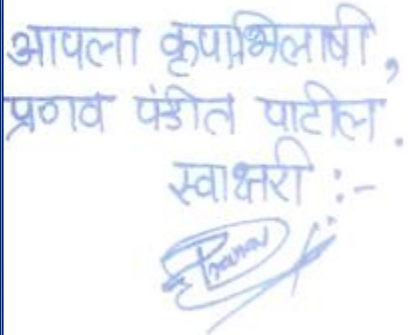 आपला कृपाभिलाषी,
प्रणव पंडीत पाटील.
स्वाक्षरी :-
Pranav